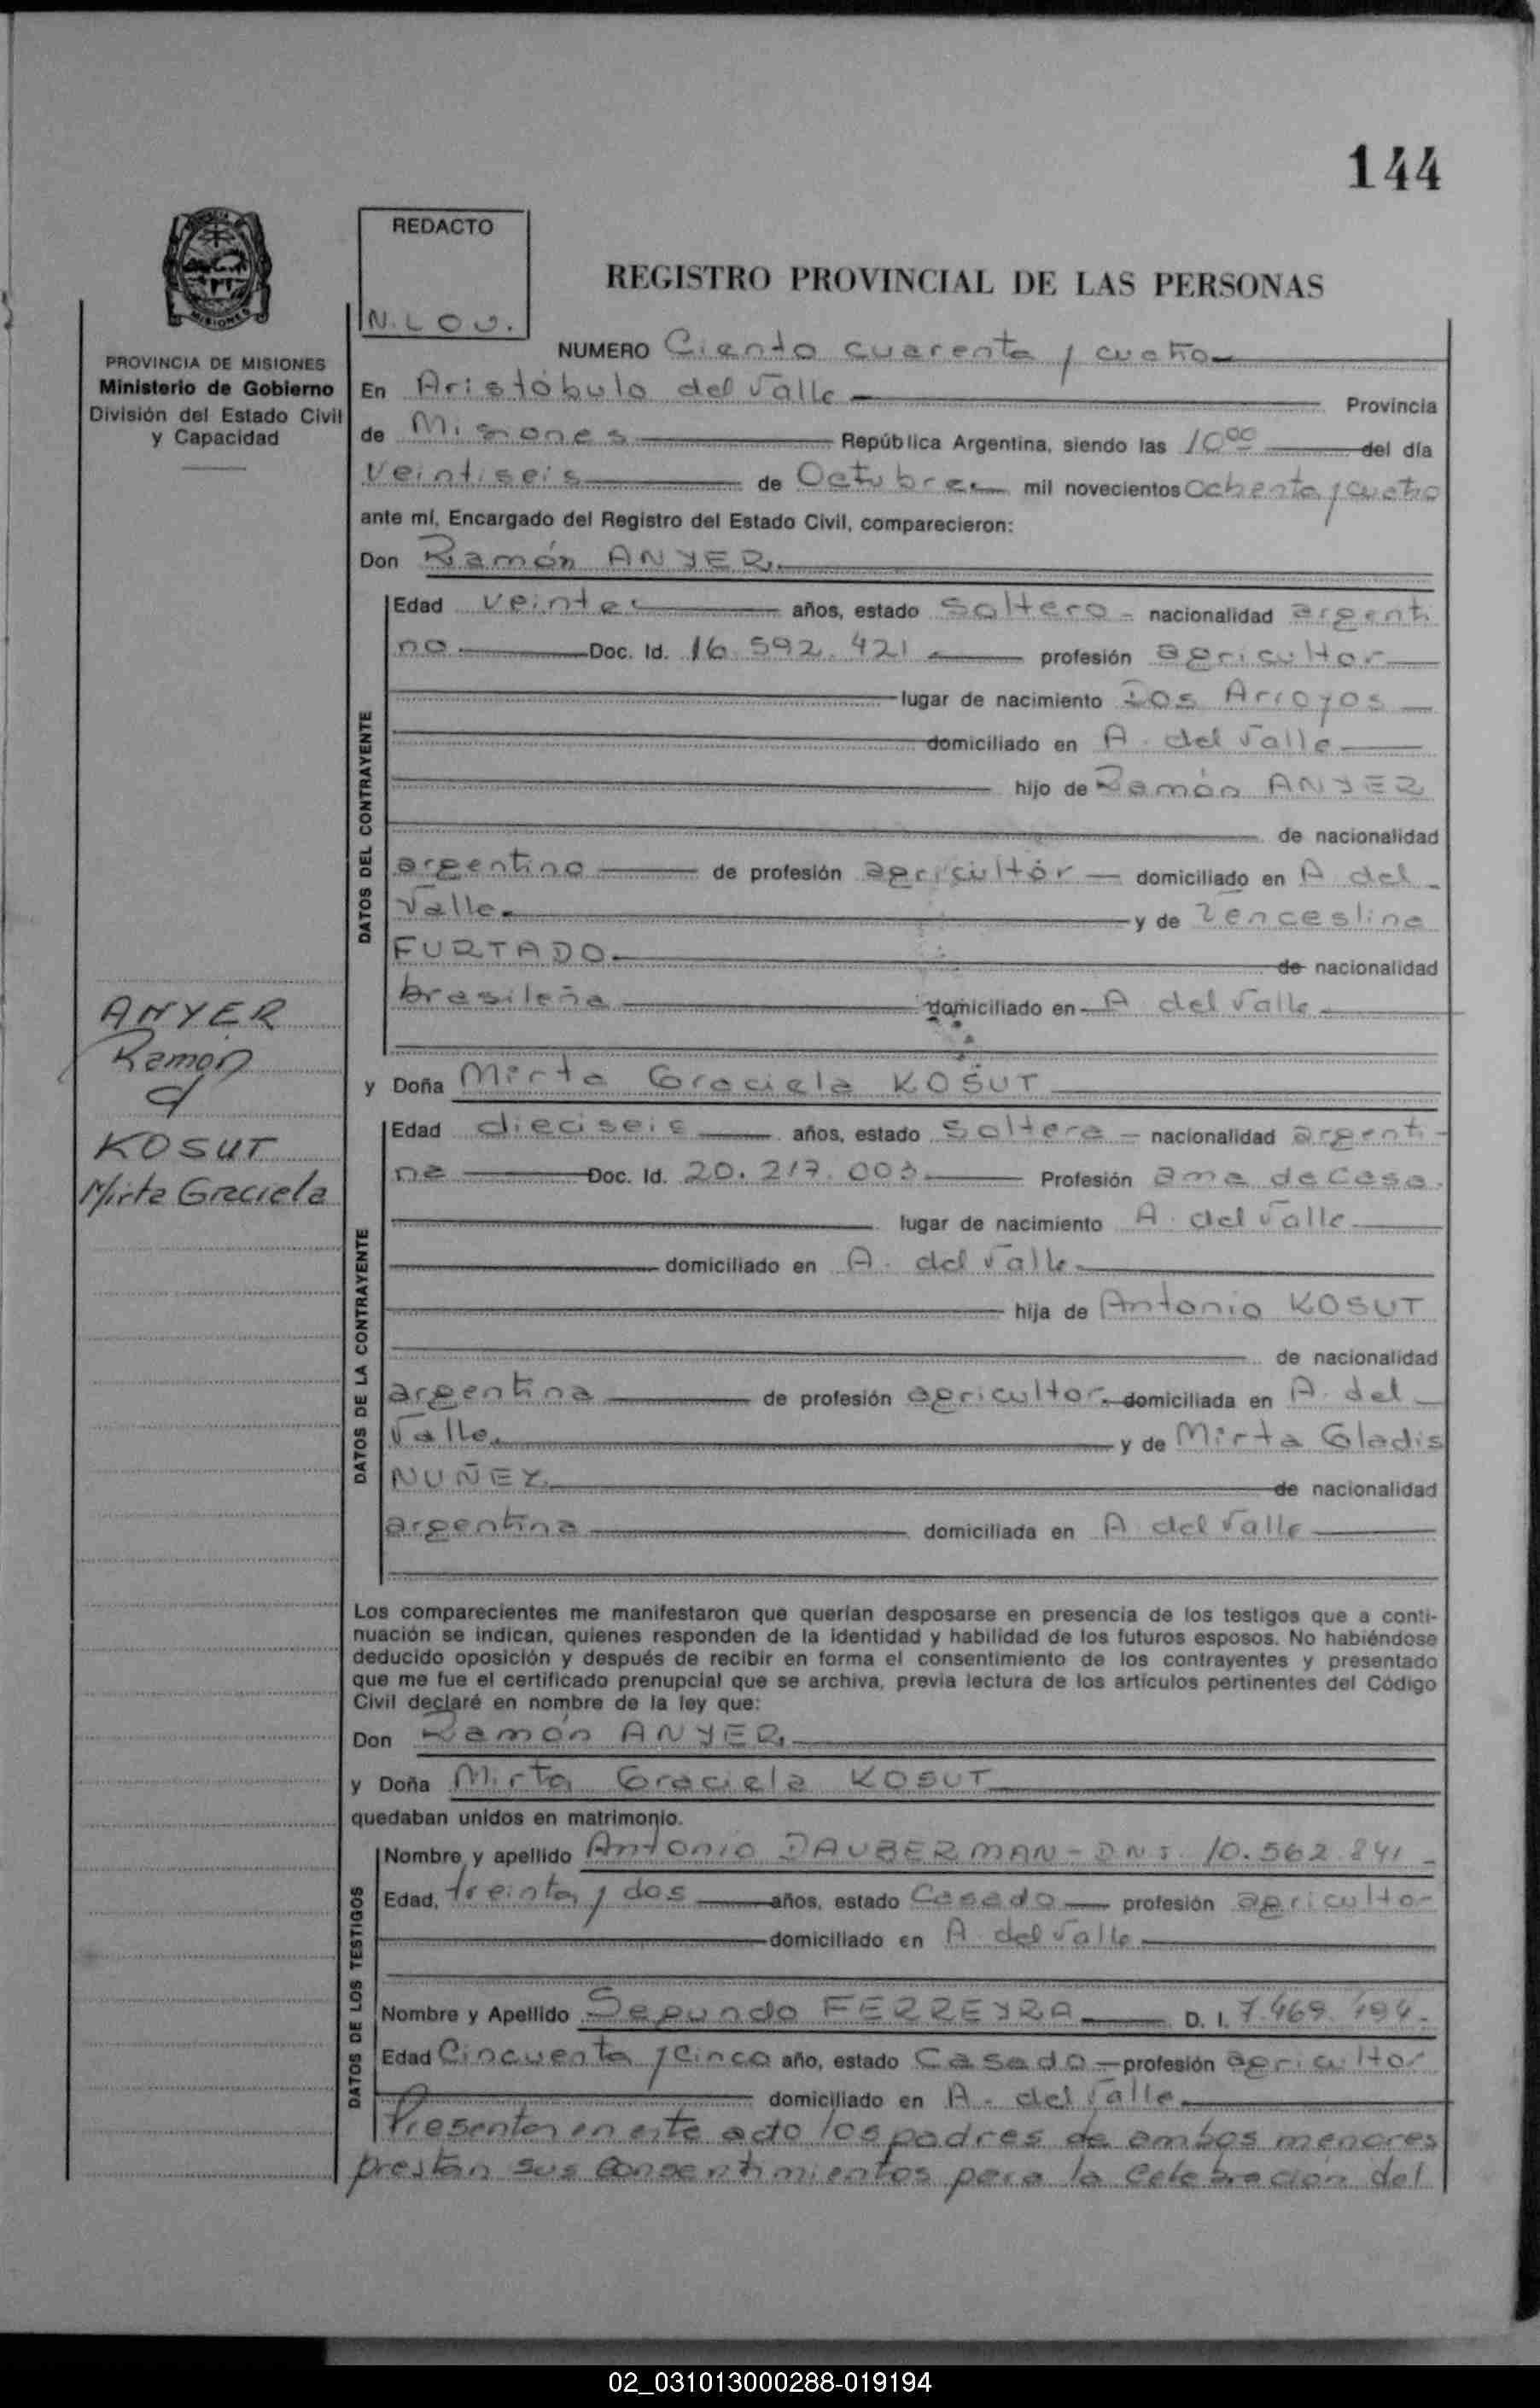 144
REDACTO
N. LOU.
REGISTRO PROVINCIAL DE LAS PERSONAS
MISIONES
PROVINCIA DE MISIONES
Ministerio de Gobierno
División del Estado Civil
y Capacidad
NUMERO Ciento cuarenta y cuatro
En Aristóbulo del Valle Provincia
de Misiones República Argentina, siendo las 10ºº del día
veintiseis de Octubre mil novecientos ochenta y cuatro
ante mí, Encargado del Registro del Estado Civil, comparecieron:
Don Ramón ANYER
DATOS DEL CONTRAYENTE
Edad veinte años, estado soltero - nacionalidad argenti
no Doc. Id. 16.592.421 profesión agricultor
lugar de nacimiento Dos Arroyos
domiciliado en A. del Valle
hijo de Ramón ANYER
de nacionalidad
argentino de profesión agricultor domiciliado en A del
Valle y de Zenceslina
FURTADO de nacionalidad
brasileña domiciliado en A del Valle
ANYER
Ramón
y
KOSUT
Mirta Graciela
y Doña Mirta Graciela KOSUT
DATOS DE LA CONTRAYENTE
Edad dieciseis años, estado soltera - nacionalidad argenti-
na Doc. Id. 20.217.003 Profesión ama de casa.
lugar de nacimiento A. del Valle
domiciliado en A. del Valle
hija de Antonio KOSUT
de nacionalidad
argentina de profesión agricultor domiciliada en A. del
Valle y de Mirta Gladis
NUÑEZ de nacionalidad
argentina domiciliada en A del Valle
Los comparecientes me manifestaron que querían desposarse en presencia de los testigos que a conti-
nuación se indican, quienes responden de la identidad y habilidad de los futuros esposos. No habiéndose
deducido oposición y después de recibir en forma el consentimiento de los contrayentes y presentado
que me fue el certificado prenupcial que se archiva, previa lectura de los artículos pertinentes del Código
Civil declaré en nombre de la ley que:
Don Ramón ANYER
y Doña Mirta Graciela KOSUT
quedaban unidos en matrimonio.
DATOS DE LOS TESTIGOS
Nombre y apellido Antonio DAUBERMAN - DNI. 10.562.841 -
Edad, treinta y dos años, estado Casado profesión agricultor
domiciliado en A. del Valle
Nombre y Apellido Segundo FERREYRA D. I. 7.469.494.-
Edad Cincuenta y cinco año, estado Casado profesión agricultor
domiciliado en A. del Valle
Presentes en este acto los padres de ambos menores
prestan sus consentimientos para la celebración del
02_031013000288-019194